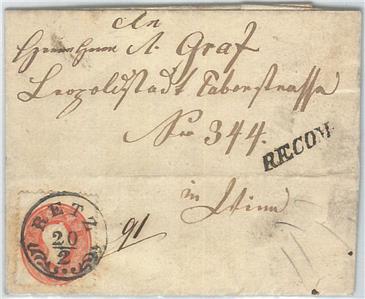 An
Herrn Herrn A. Graf
Leopoldstadt Taborstrasse
Nro 344.
RECOM.
in Wien
RETZ
20
2
91